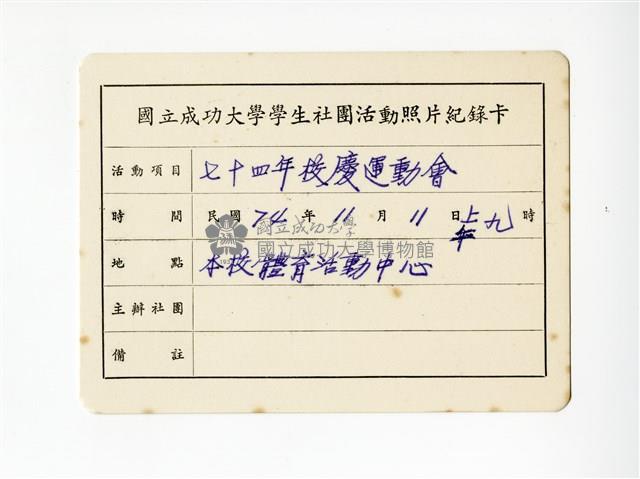 國立成功大學學生社團活動照片紀錄卡
活動項目 七十四年校慶運動會
時間 民國 74 年 11 月 11 日 上午 九 時
國立成功大學
國立成功大學博物館
地點 本校體育活動中心
主辦社團
備註